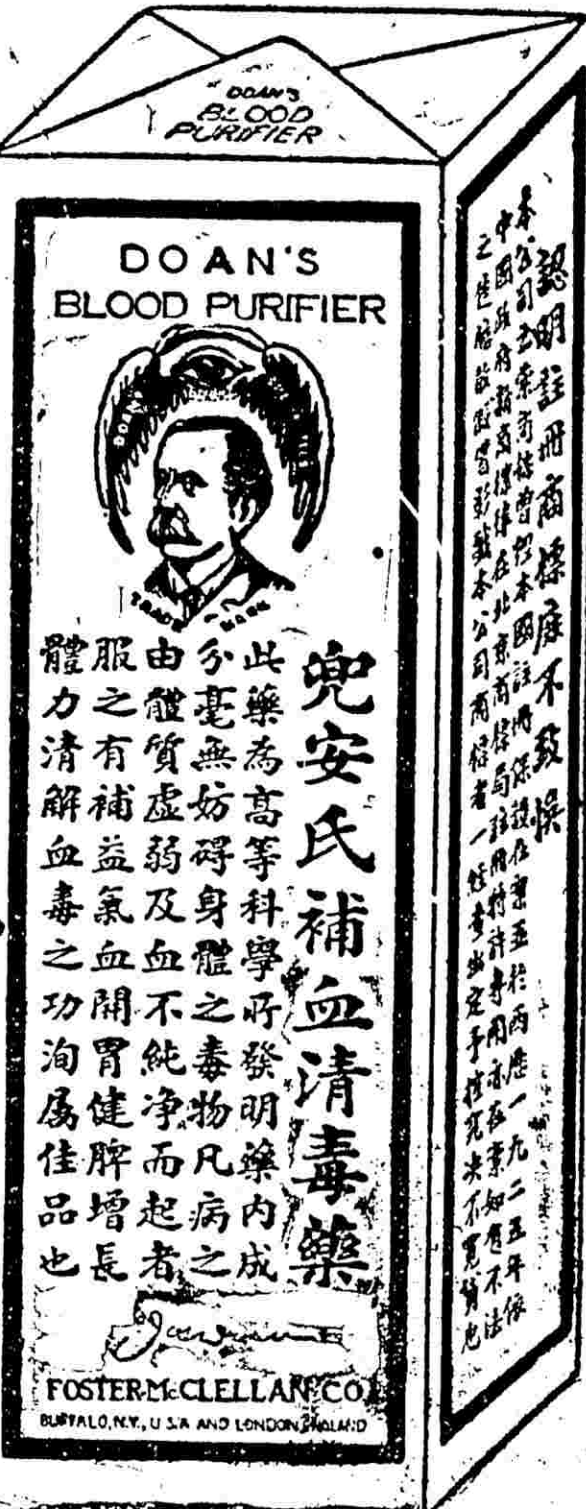 DOAN'S
BLOOD
PURIFIER
DOAN'S
BLOOD PURIFIER
TRADE MARK
兜安氏補血清毒藥
此藥為高等科學所發明藥內成
分毫無妨碍身體之毒物凡病之
由體質虛弱及血不純净而起者
服之有補益氣血開胃健脾增長
體力清解血毒之功洵屬佳品也
FOSTER-McCLELLAN CO.
BUFFALO, N.Y., U.S.A AND LONDON, ENGLAND
認明註冊商標庶不致悞
本公司商標曾經本國註冊保護在案並於西歷一九二五年依
中國政府新商標律在北京商標局註冊特許專用亦在案如有不法
之徒膽敢假冒影戤本公司商標者一經查出定予控究决不寬貸也